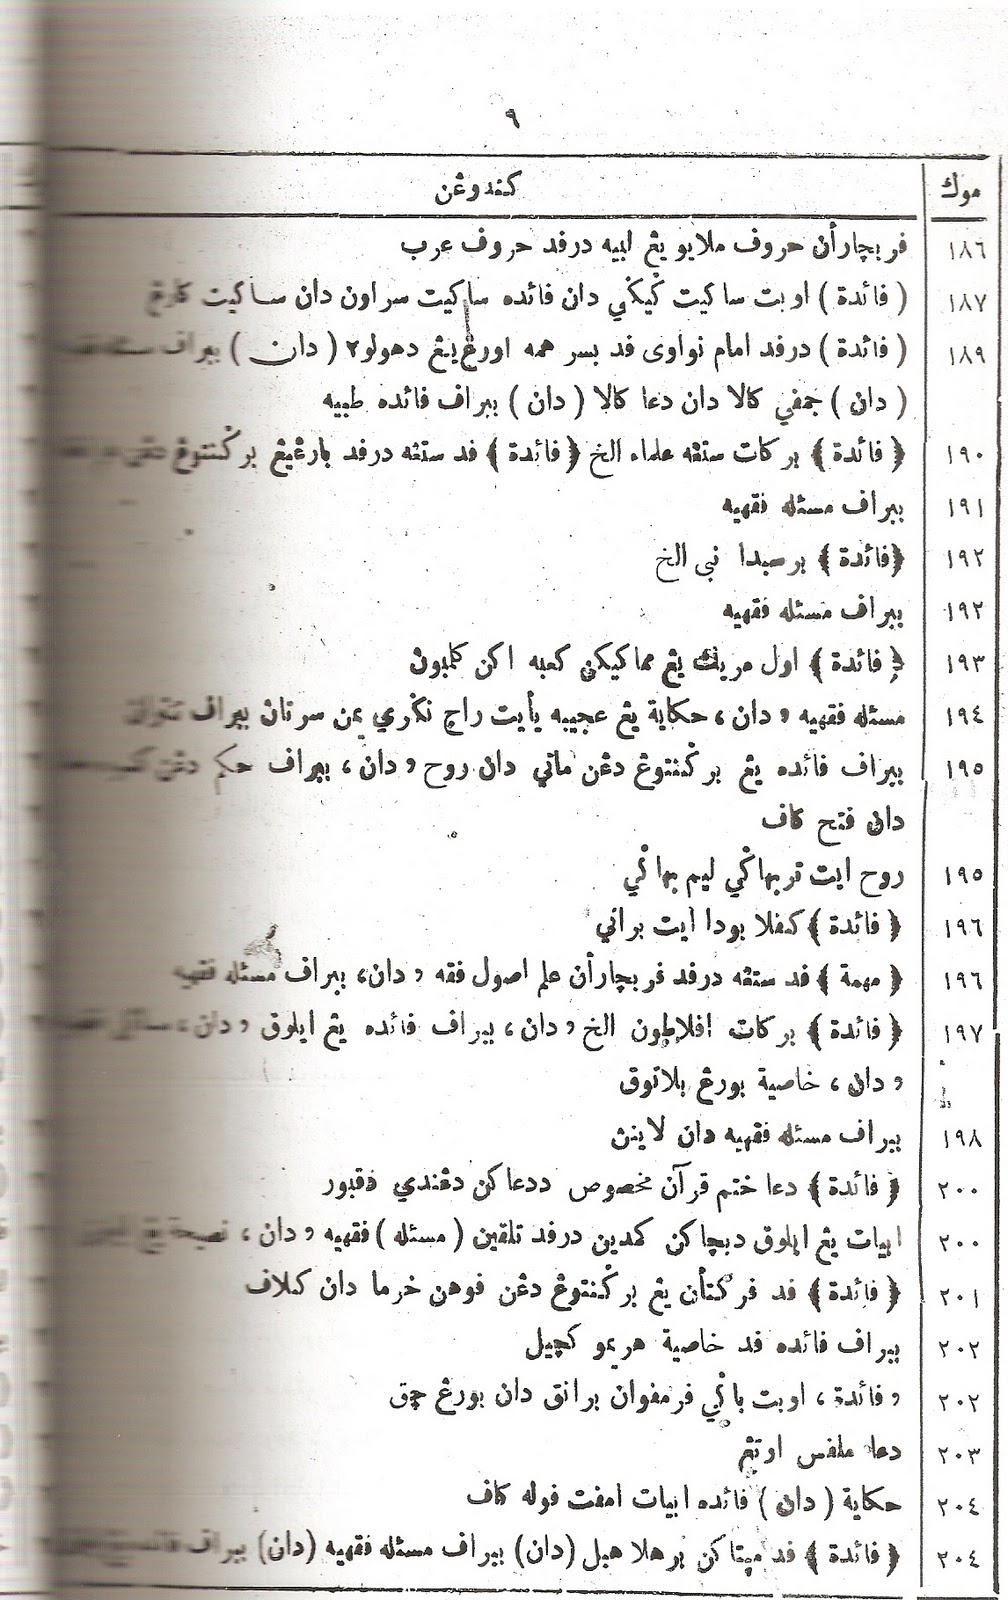 ٩
موك كندوڠن
١٨٦ فربچارأن حروف ملايو يڠ لبيه درفد حروف عرب
١٨٧ ( فائدة ) اوبت ساكيت ݢيݢي دان فائده ساكيت سراون دان ساكيت كارڠ
١٨٩ ( فائدة ) درفد امام نواوى فد بسر همه اورڠ يڠ دهولو٢ ( دان ) ببراف مسئله
( دان ) جمفي كالا دان دعا كالا ( دان ) ببراف فائده طبيه
١٩٠ ﴿ فائدة ﴾ بركات ستڠه علماء الخ ﴿ فائدة ﴾ فد ستڠه درفد بارڠيڠ برݢنتوڠ دڠن
١٩١ ببراف مسئله فقهيه
١٩٢ ﴿ فائدة ﴾ برسبدا نبي الخ
١٩٢ ببراف مسئله فقهيه
١٩٣ ﴿ فائدة ﴾ اول مريك يڠ مماكيكن كعبه اكن كلمبون
١٩٤ مسئله فقهيه ﴿ دان ﴾ حكاية يڠ عجيبه يأيت راج نݢري يمن سرتان ببراف
١٩٥ ببراف فائده يڠ برݢنتوڠ دڠن ماتي دان روح ﴿ دان ﴾ ببراف حكم دڠن
دان فتح كاف
١٩٥ روح ايت تربهاݢي ليم بهاݢي
١٩٦ ﴿ فائدة ﴾ كفلا بودا ايت براني
١٩٦ ﴿ مهمة ﴾ فد ستڠه درفد فربچارأن علم اصول فقه ﴿ دان ﴾ ببراف مسئله فقهيه
١٩٧ ﴿ فائدة ﴾ بركات افلاطون الخ ﴿ دان ﴾ ببراف فائده يڠ ايلوق ﴿ دان ﴾
﴿ دان ﴾ خاصية بورڠ بلاتوق
١٩٨ ببراف مسئله فقهيه دان لاينن
٢٠٠ ﴿ فائدة ﴾ دعا ختم قرآن مخصوص ددعاكن دڠندي دقبور
٢٠٠ ابيات يڠ ايلوق دبچاكن كمدين درفد تلقين ( مسئله ) فقهيه ﴿ دان ﴾ نصيحة يڠ
٢٠١ ﴿ فائدة ﴾ فد فركتأن يڠ برݢنتوڠ دڠن فوهن خرما دان كلاف
٢٠٢ ببراف فائده فد خاصية هريمو كچيل
٢٠٢ ﴿ فائدة ﴾ اوبت باݢي فرمفوان برانق دان بورڠ چمق
٢٠٣ دعا ملفس اوتڠ
٢٠٤ حكاية ( دان ) فائده ابيات امفت فوله كاف
٢٠٤ ﴿ فائدة ﴾ فد مپتاكن برهلا هبل (دان) ببراف مسئله فقهيه (دان) ببراف